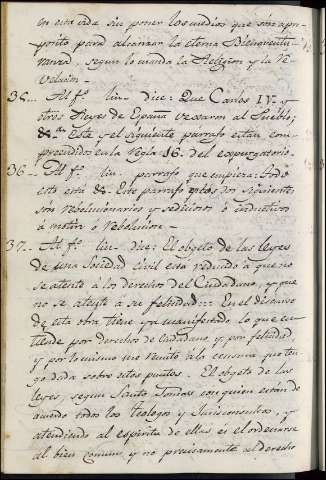 en esta vida sin poner los medios que son apro-
posito para alcanzar la eterna Bienaventu-
ranza, segun lo manda la Religion y la Re-
velacion.
35... Al fº lin- dice: Que Carlos IV. y
otros Reyes de España vexaron al Pueblo;
&ª Este y el siguiente parrafo estan com-
prendidos en la regla 16. del expurgatorio.
36.- Al fº lin. parrafo que empieza: Todo
esto está &. Este parrafo y los dos siguientes
són revolucionarios y sediciosos ó inductivos
á motin ó rebelion.-
37.- Al fº lin- dice: El objeto de las leyes
de una Sociedad Civil está reducido á que no
se atente á los derechos del Ciudadano, y que
no se atente á su felicidad::: En el discurso
de esta obra tiene ya manifestado lo que en-
tiende por derechos de Ciudadano y por felicidad
y por lo mismo me remito á la censura que ten-
go dada sobre estos puntos. El objeto de las
leyes, segun Santo Tomas con quien están de
acuerdo todos los teologos y Jurisconsultos, y
atendiendo al espiritu de ellas es el ordenarse
al bien comun, y no precisamente al derecho